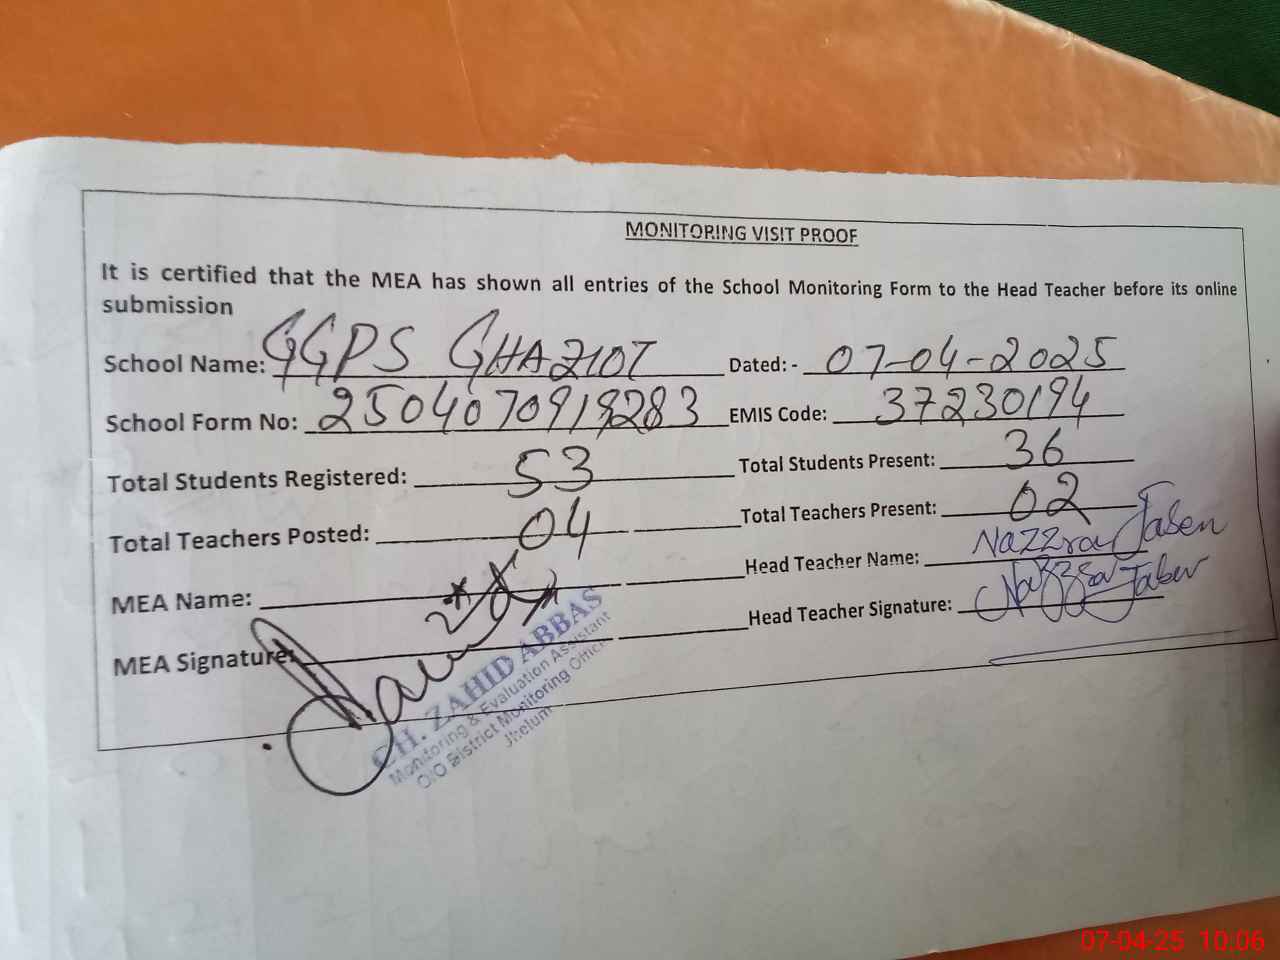 MONITORING VISIT PROOF
It is certified that the MEA has shown all entries of the School Monitoring Form to the Head Teacher before its online
submission
School Name: GGPS GHAZIOT Dated: - 07-04-2025
School Form No: 250407091928​3 EMIS Code: 37230194
Total Students Registered: 53 Total Students Present: 36
Total Teachers Posted: 04 Total Teachers Present: 02
MEA Name: Head Teacher Name: Nazzra Jaben
MEA Signature: Head Teacher Signature:
CH. ZAHID ABBAS
Monitoring & Evaluation Assistant
O/O District Monitoring Office
Jhelum
07-04-25 10:06